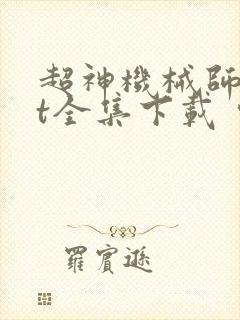 超神機械師
t全集下載
羅賓遜